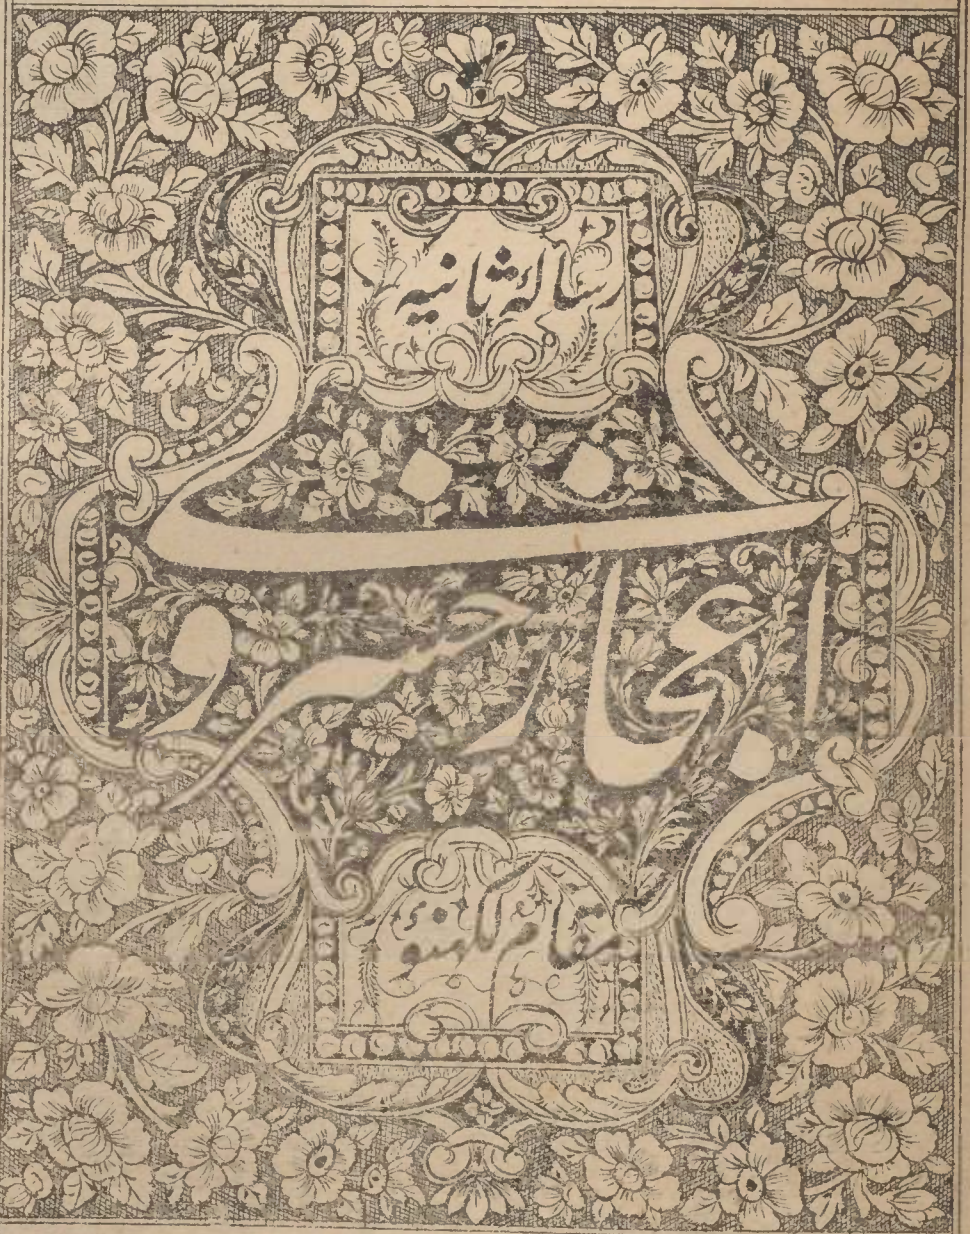 رسالۂ ثانیہ
اعجاز خسروی
مقام لکھنؤ